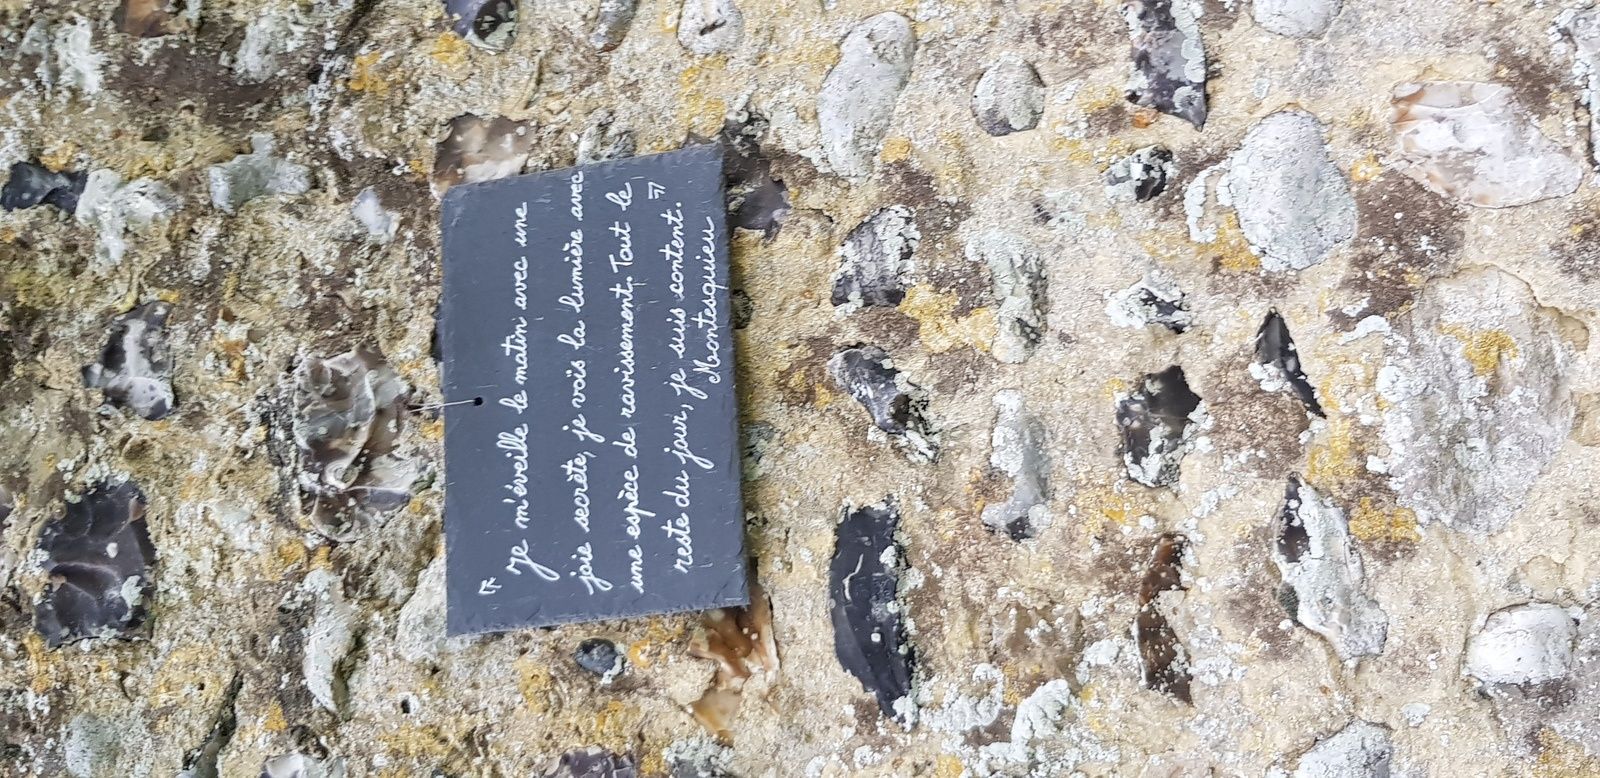 " Je m'éveille le matin avec une
joie secrète, je vois la lumière avec
une espèce de ravissement. Tout le
reste du jour, je suis content. "
Montesquieu